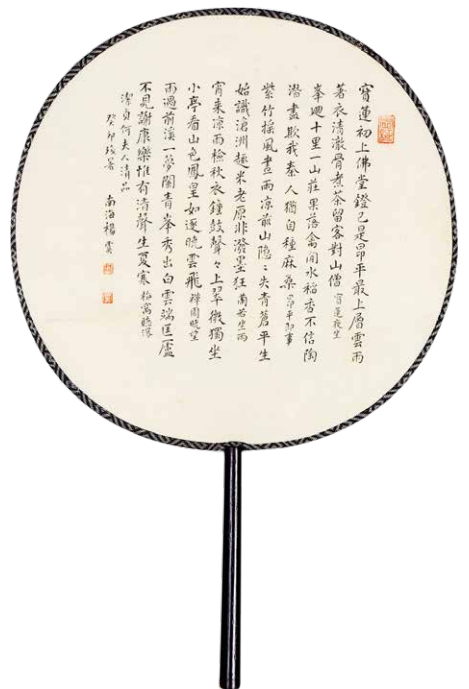 寶蓮初上佛堂鐙已是昂平最上層雲雨
著衣清澈骨煮茶留客對山僧 寶蓮夜坐
峯迴十里一山莊果落禽閒水稻香不信陶
潛盡欺我秦人猶自種麻桑 昂平即事
紫竹搖風晝雨涼前山隱〻失青蒼平生
始識滄洲趣米老原非潑墨狂 蘭若坐雨
宵來凉雨檢秋衣鍾鼓聲〻上翠微獨坐
小亭看山色鳳皇如逐曉雲飛 禪關曉望
雨過前溪一夢闌青峯秀出白雲端匡廬
不見謝康樂惟有清聲生夏寒 聽瀑
潔貞何夫人清品
癸卯殘暑 南海楊